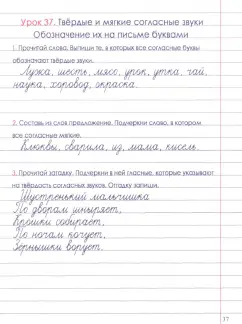 Урок 37. Твёрдые и мягкие согласные звуки
Обозначение их на письме буквами
1. Прочитай слова. Выпиши те, в которых все согласные буквы
обозначают твёрдые звуки.
Лужа, шесть, мясо, урок, утка, чай,
наука, хоровод, окраска.
2. Составь из слов предложение. Подчеркни слово, в котором
все согласные мягкие.
Клюквы, сварила, из, мама, кисель.
3. Прочитай загадку. Подчеркни в ней гласные, которые указывают
на твёрдость согласных звуков. Отгадку запиши.
Шустренький мальчишка
По дворам шныряет,
Крошки собирает;
По ночам кочует,
Зёрнышки ворует.
37